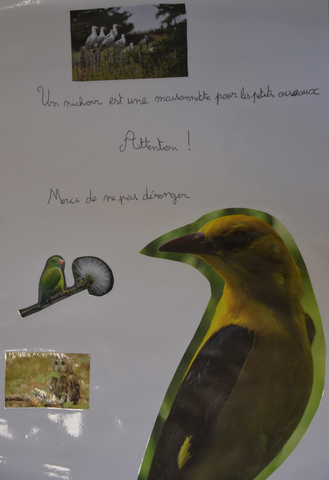 Un nichoir est une maisonnette pour les petits oiseaux
Attention !
Merci de ne pas déranger